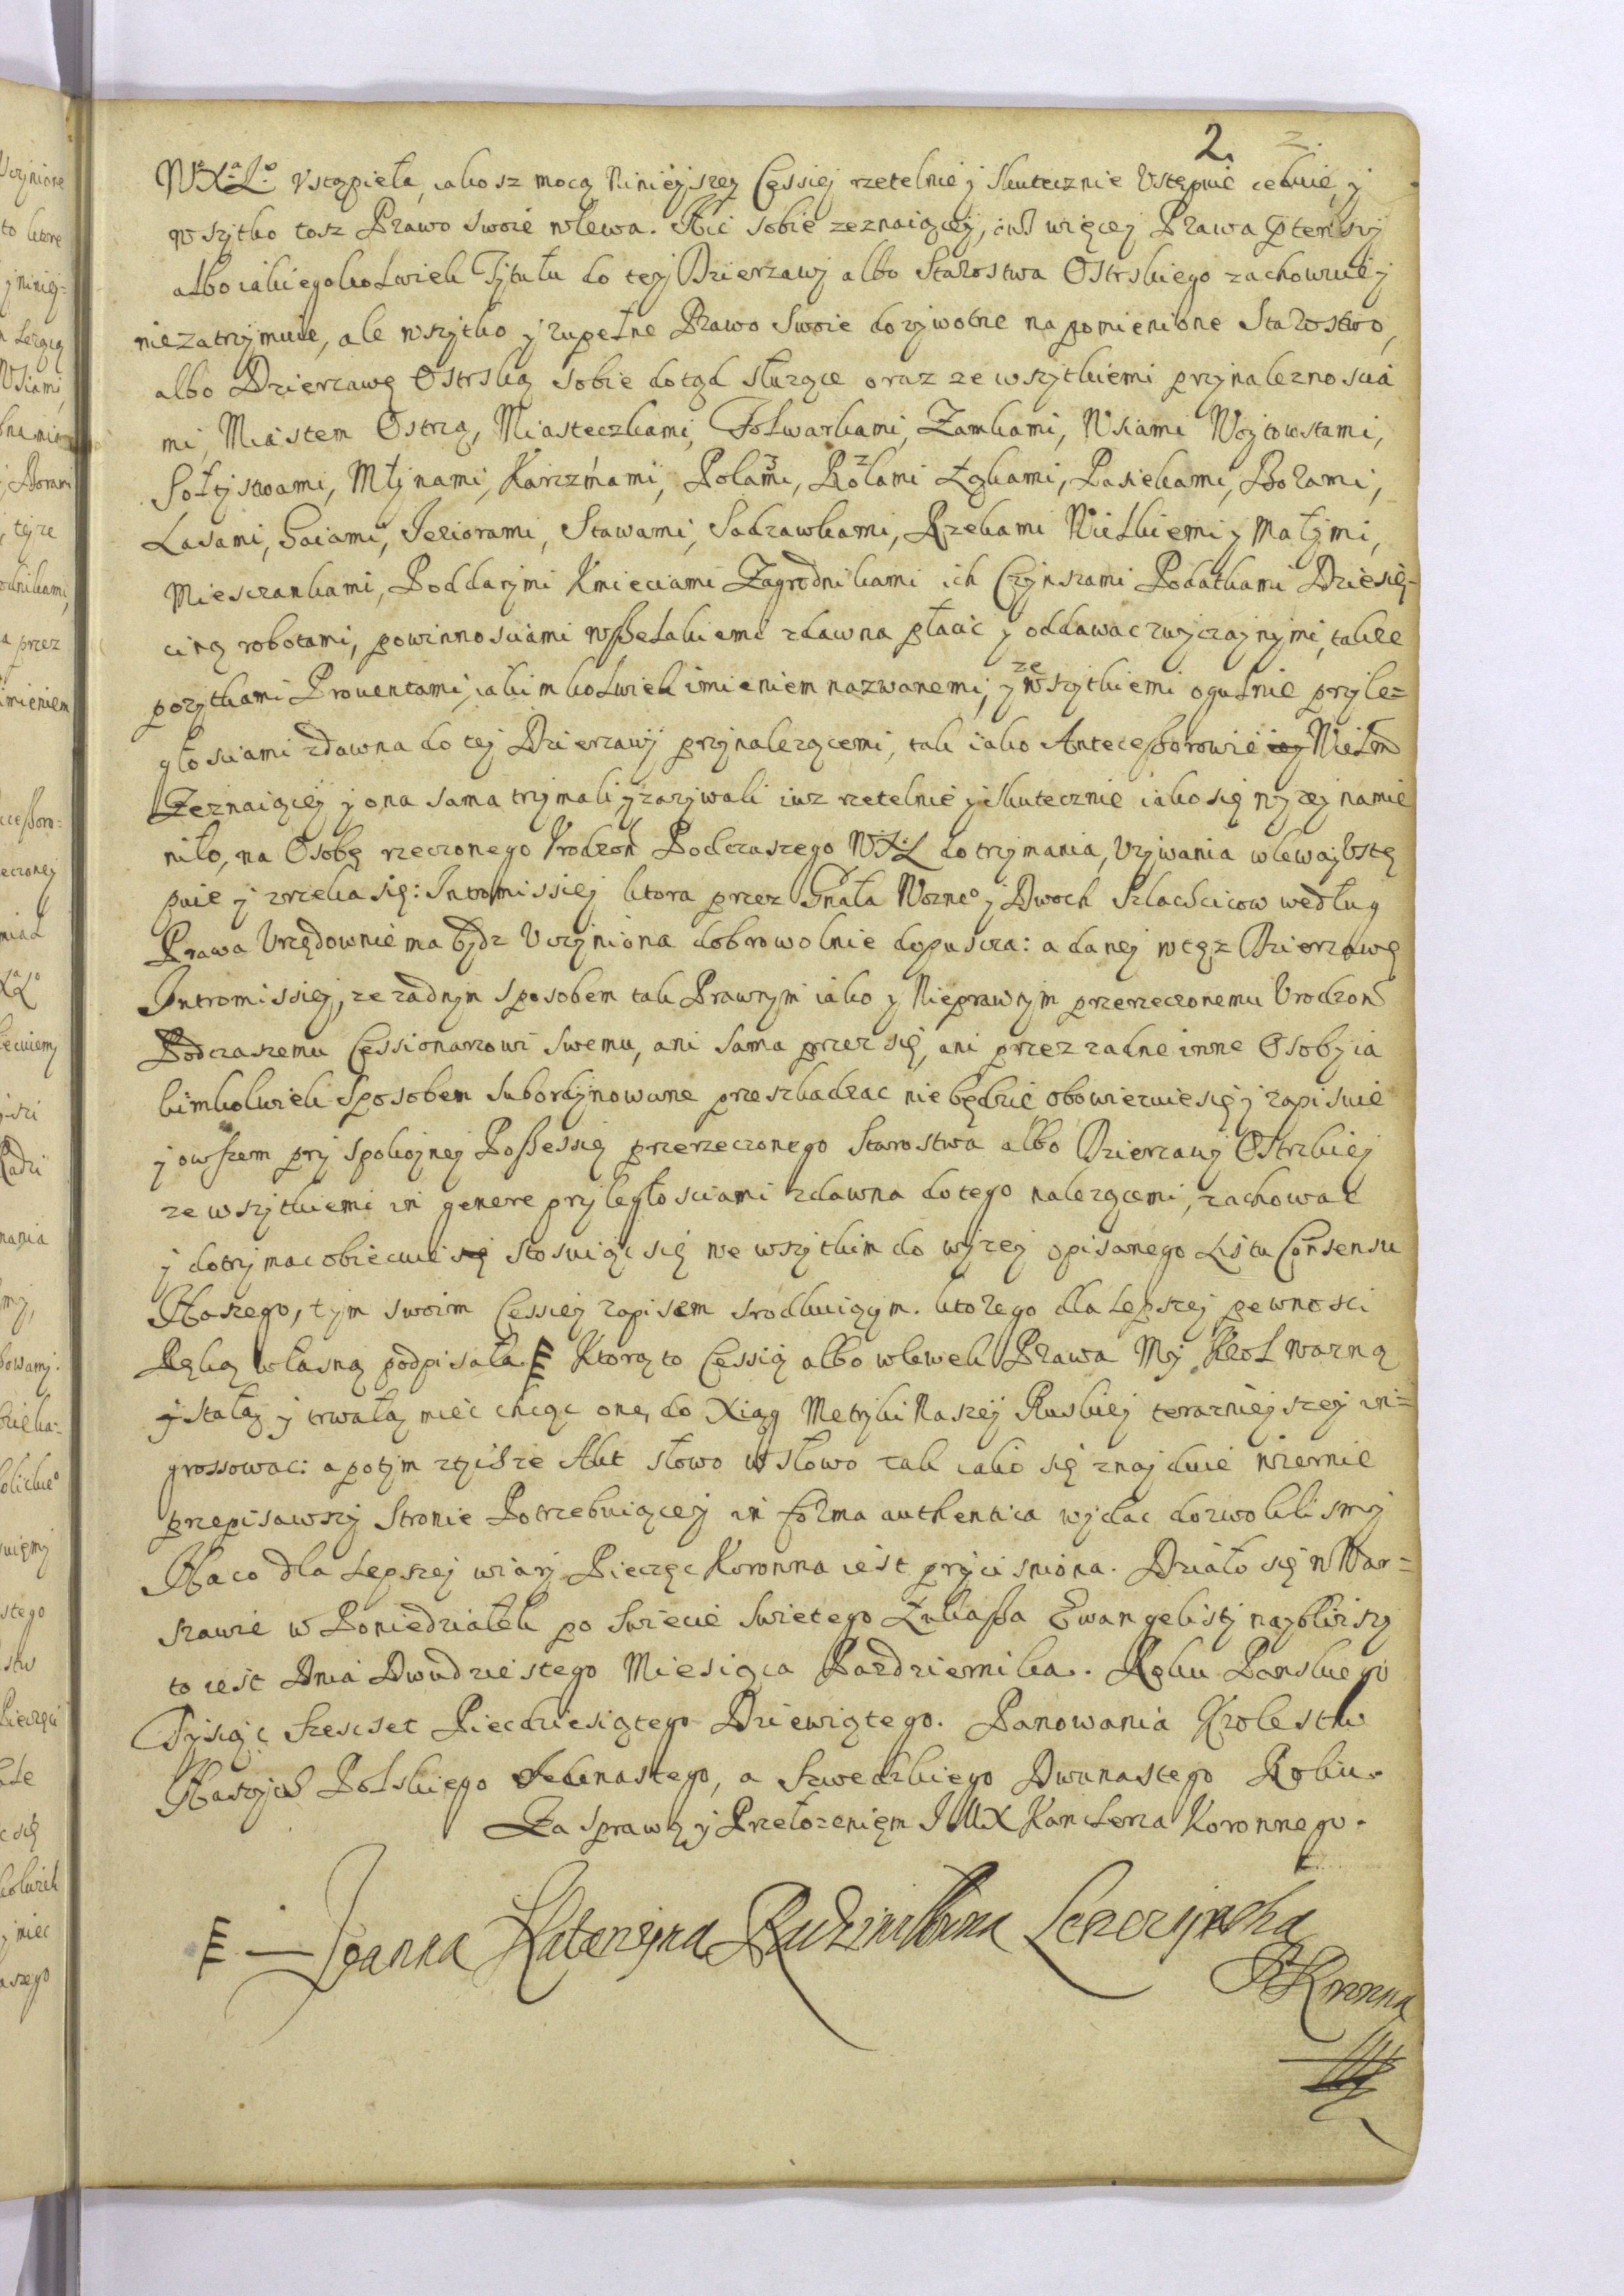 2. 2.
WXaLo Vstąpieła, iakosz mocą Ninieyszey Cessiey rzetelnie y skutecznie Vstępuie ceduie, y
wszytko tosz Prawo swoie wlewa. Nic sobie zeznaiącey, iusz więcey Prawa
albo iakiegokolwiek Tytułu do teyj Dzierzawy albo Starostwa Ostrskiego zachowuie y
niezatrzymuie, ale wszytko y zupełne Prawo Swoie dozywotne na pomienione Starostwo,
albo Dzierzawę Ostrską sobie dotąd słuzące oraz ze wszytkiemi przynaleznoscia
mi, Miastem Ostrzą, Miasteczkami, Folwarkami, Zamkami, Wsiami Woytowstami,
Sołtystwami, Młynami, Karczmami, Polami, Rolami Łąkami, Pasiekami, Borami,
Lasami, Gaiami, Ieziorami, Stawami, Sadzawkami, Rzekami Wielkiemi y Małymi,
Miesczankami, Poddanymi Kmieciami Zagrodnikami ich Czynszami Podatkami Dziesię-
ciną robotami, powinnosciami wszelakiemi zdawna płacic y oddawac zwyczaynymi, takze
pozytkami Prouentami, iakimkolwiek imieniem nazwanemi, y ze wszytkiemi ogulnie przyle=
głosciami zdawna do tey Dzierzawy przynalezącemi, tak iako Antecessorowie iey Wielm
Zeznaiącey y ona sama trzymali y zazywali iuz rzetelnie y skutecznie iako się wyzey namie
niło, na Osobę rzeczonego Vrodzon Podczaszego WXL do trzymania, Vzywania wlewa y Vstę
puie y zrzeka się: Intromissiey ktora przez Gnała Wozneo y Dwoch Szlachcicow według
Prawa Vrzędownie ma bydz Vczyniona dobrowolnie dopuscza: a daney w tęz Dzierzawę
Intromissiey, ze zadnym sposobem tak Prawnym iako y Nieprawnym przerzeczonemu Vrodzon
Podczaszemu Cessionarzowi swemu, ani sama przez się, ani przez zadne inne Osoby ia
kimkolwiek sposobem subordynowane przeszkadzac niebędzie obowiezuie się y zapisuie
y owszem przy spokoyney Possessiey przerzeczonego Starostwa albo Dzierzawy Ostrzkiey
ze wszytkiemi in genere przyległosciami zdawna do tego nalezącemi, zachowac
y dotrzymac obiecuie się stosuiąc się we wszytkim do wyzey opisanego Listu Consensu
Naszego, tym swoim Cessiey zapisem srodkuiącym. ktorego dla Lepszey pewnosci
Ręką własną podpisała Ktorą to Cessią albo wlewek Prawa My Krol wazną
y stałą y trwałą miec chcąc onę do Xiąg Metryki Naszey Ruskiey terazniejszey in=
grossowac: a potym tysze Akt słowo w słowo tak iako się znayduie wiernie
przepisawszy Stronie Potrzebuiącey in forma authentica wydac dozwolilismy
Na co dla Lepszey wiary Pieczęc Koronna iest przycisniona. Działo się w War=
szawie w Poniedziałek po Swięcie Swietego Łukassa Ewangelisty naybliszy
to iest Dnia Dwudziestego Miesiąca Pazdziernika. Roku Panskiego
Tysiąc Szescset Piecdziesiątego Dziewiątego. Panowania Krolestw
Naszych Polskiego Iedenastego, a Szwedzkiego Dwunastego Roku.
Za sprawą y Przełozenięm IMX Kanclerza Koronnego.
Joanna Katarzyna Radzieiowska Leszczynska
P Koronna